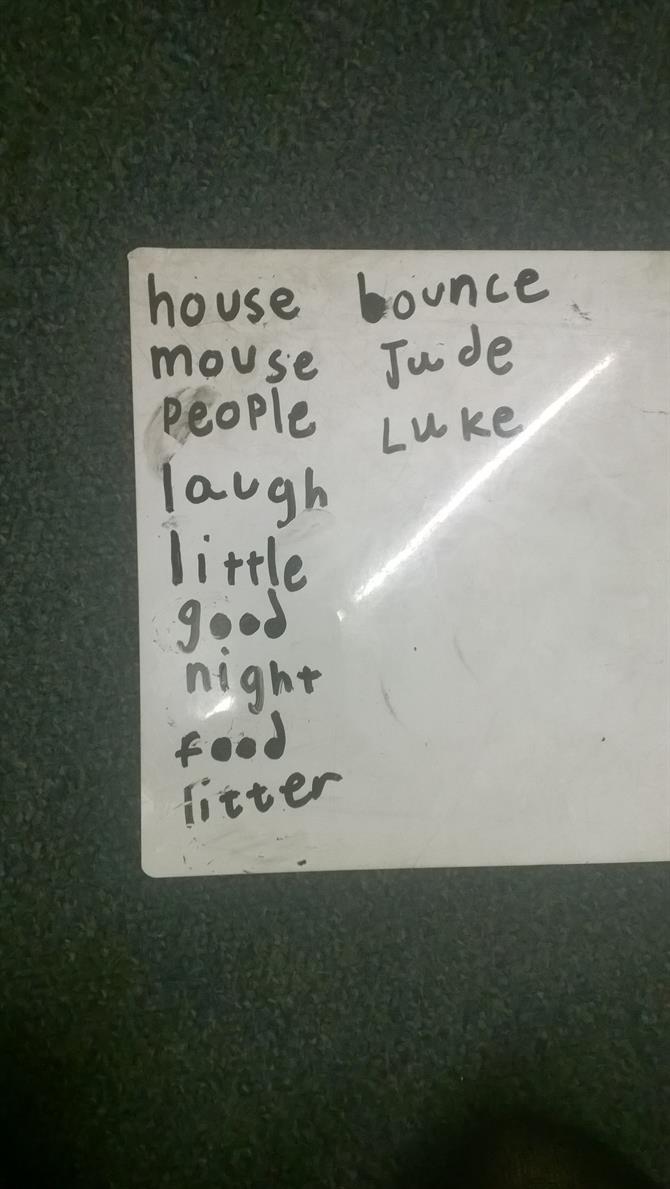 house bounce
mouse Jude
people Luke
laugh
little
good
night
food
litter